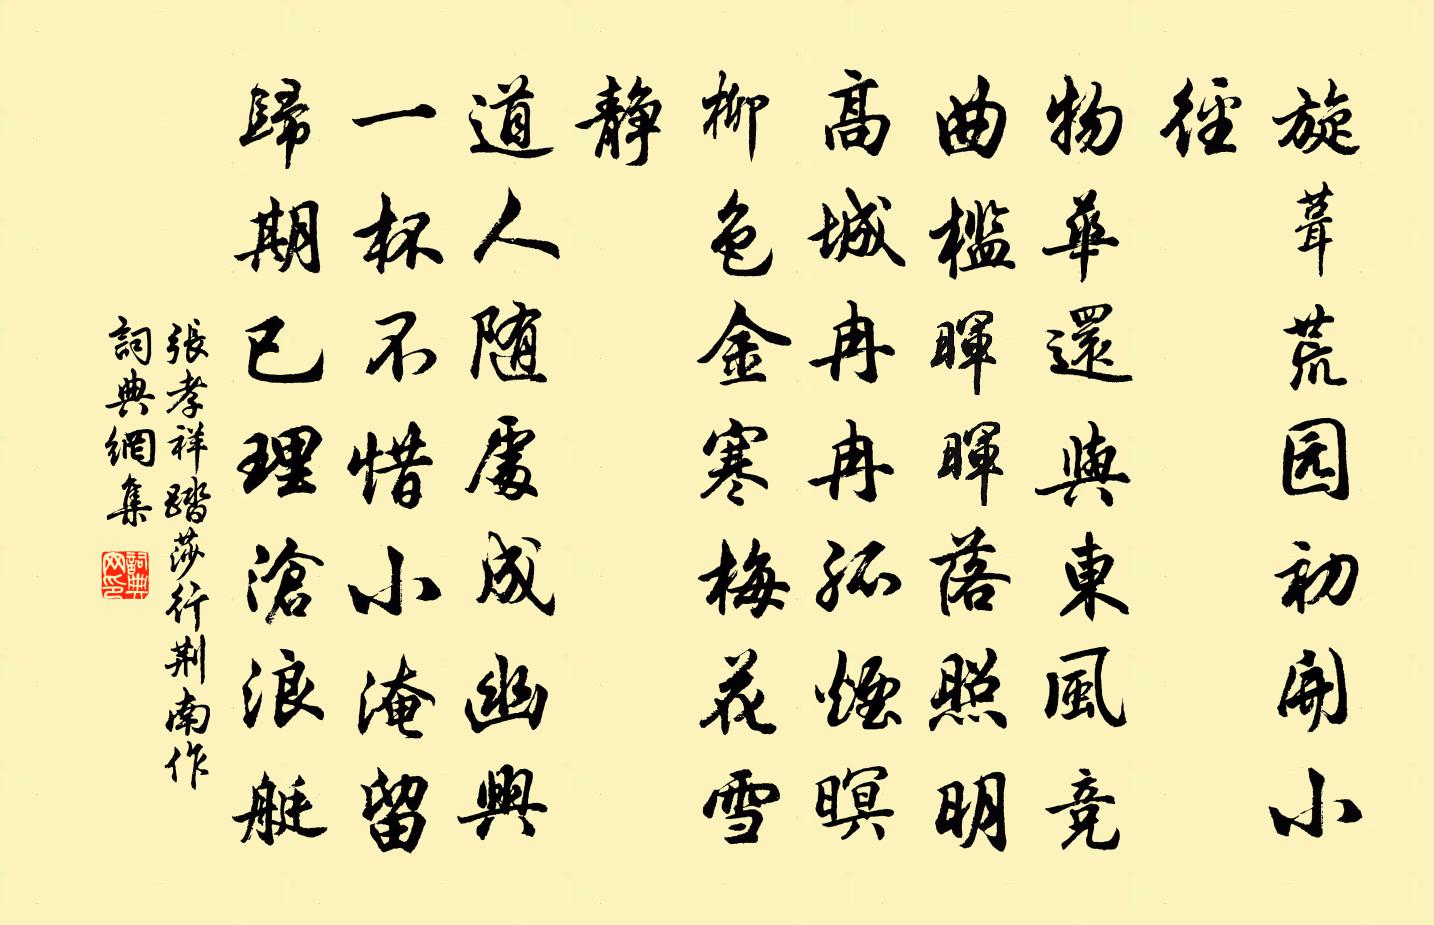 旋葺荒园初開小
徑
物華還與東風競
曲檻暉暉落照明
高城冉冉孤煙暝
柳色金寒梅花雪
靜
道人隨處成幽興
一杯不惜小淹留
歸期已理滄浪艇
張孝祥踏莎行荆南作
詞典網集
詞典网印